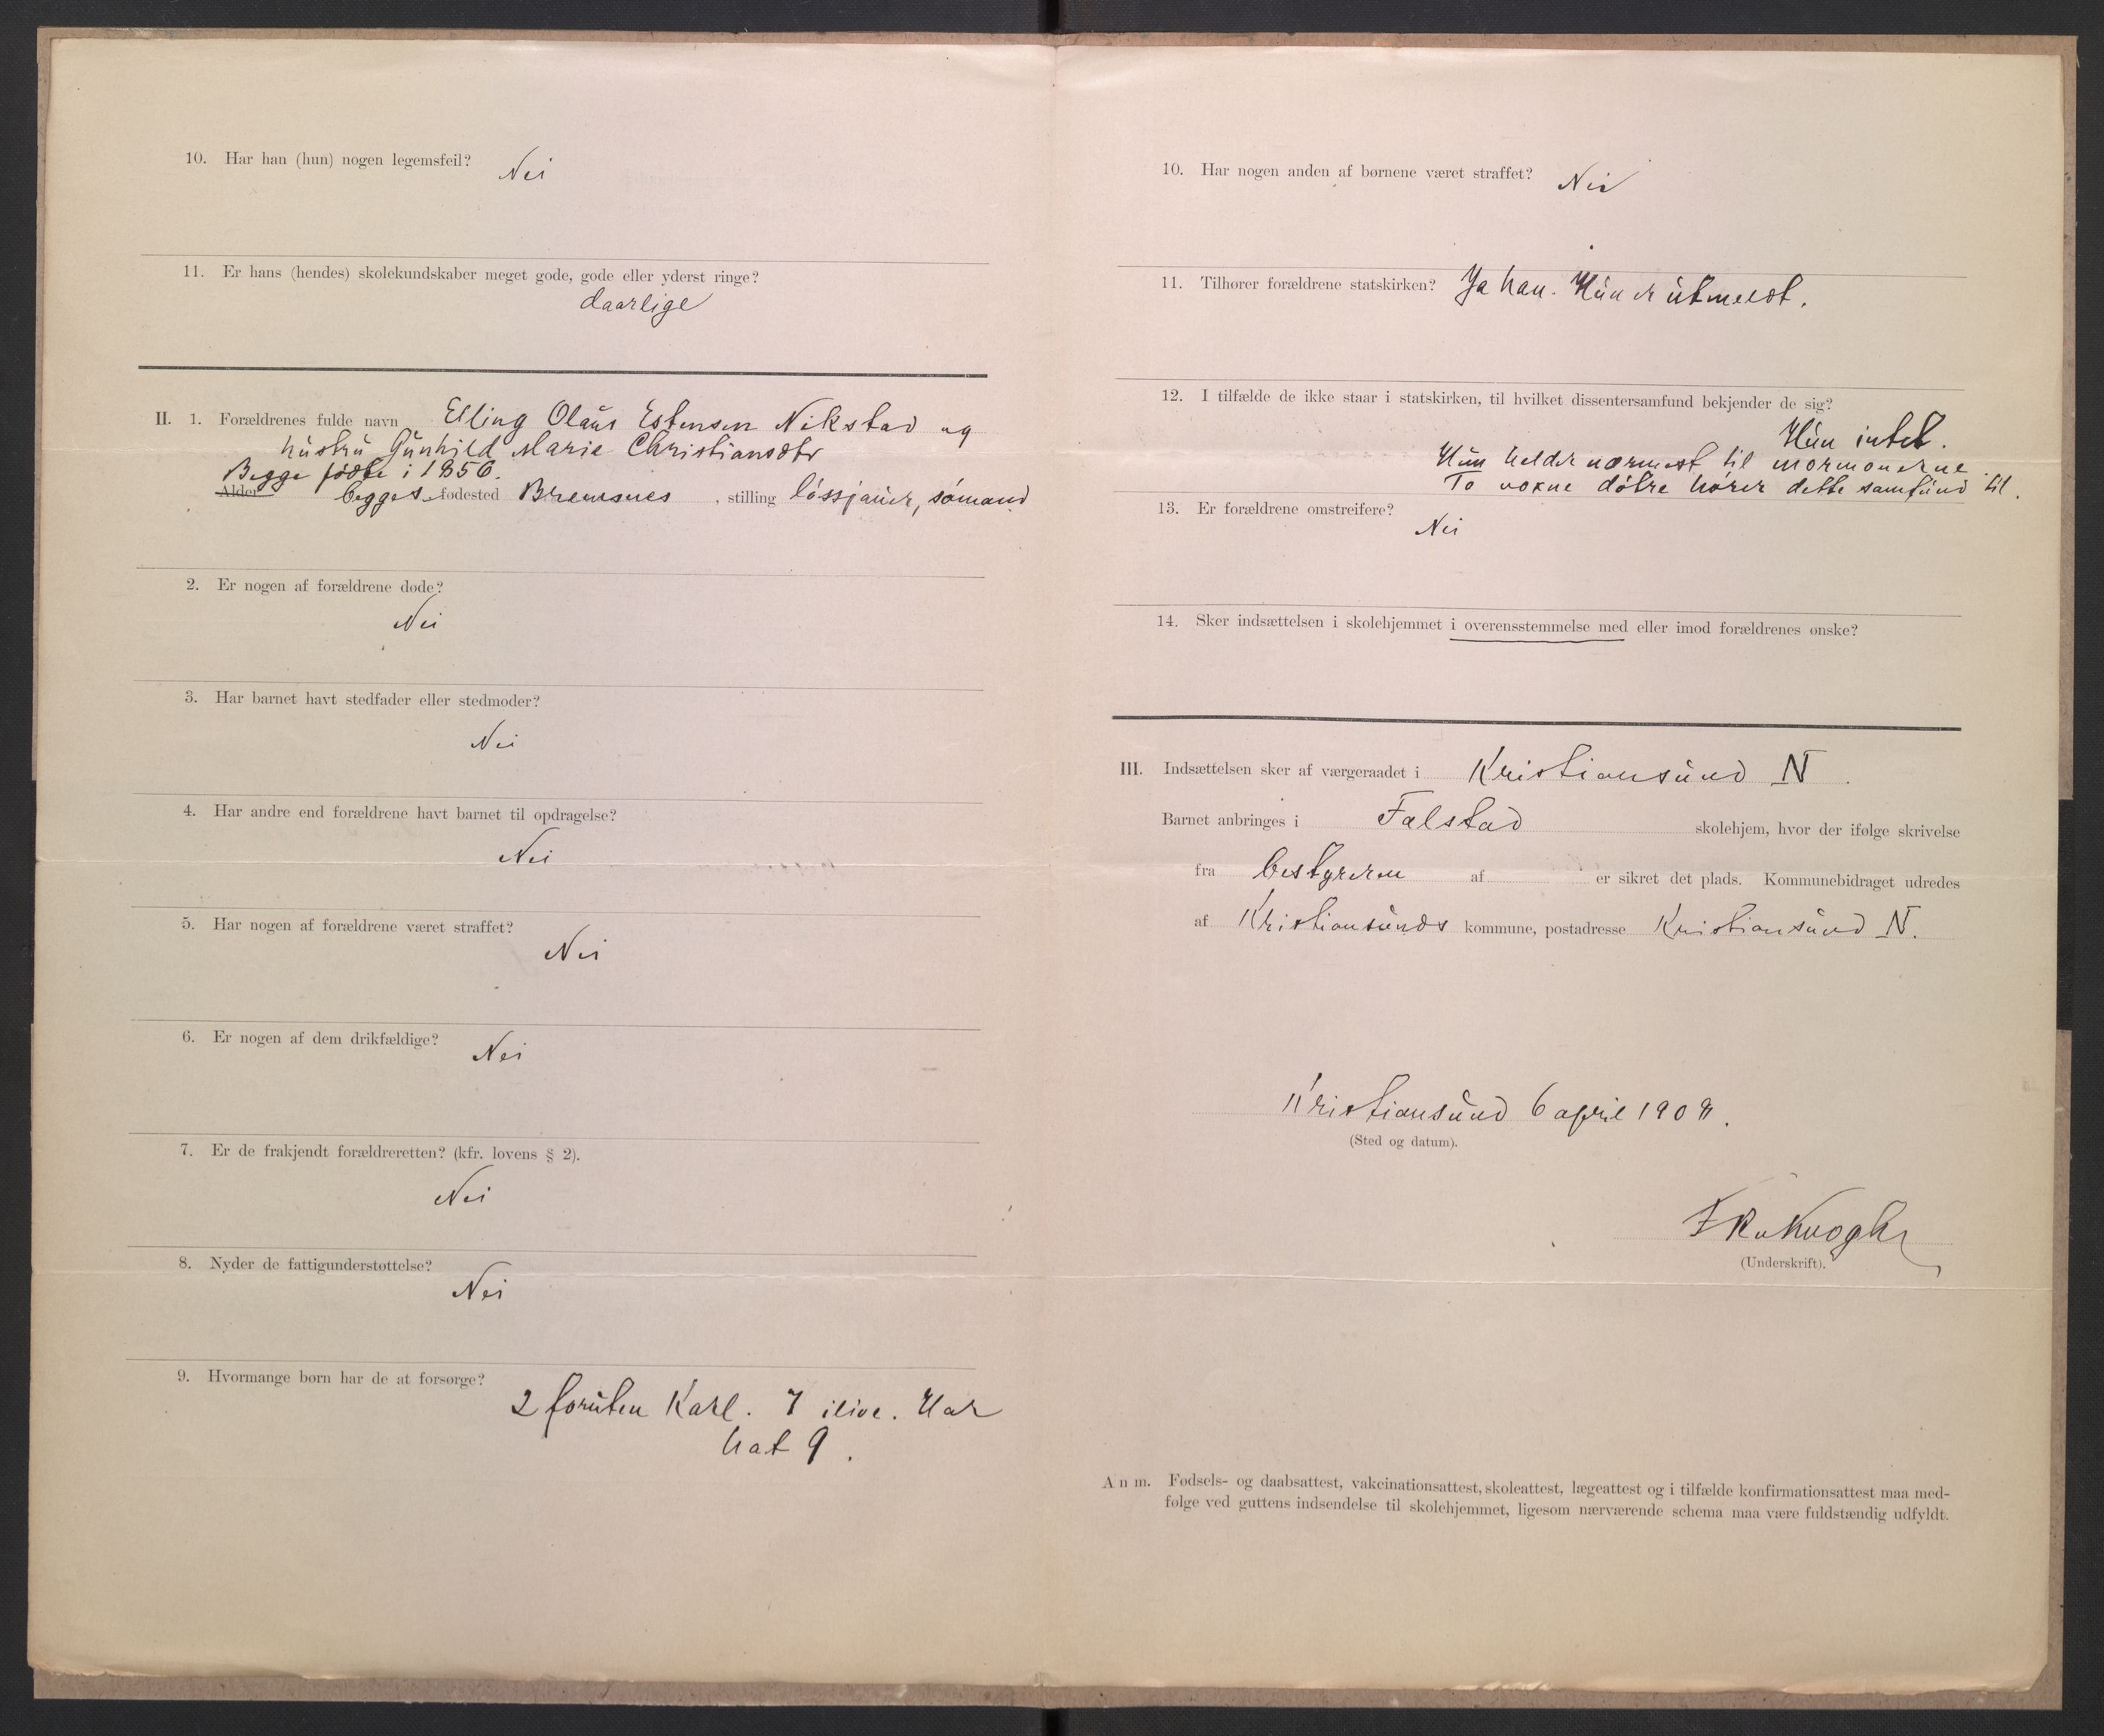 10. Har han (hun) nogen legemsfeil? Nei
11. Er hans (hendes) skolekundskaber meget gode, gode eller yderst ringe?
daarlige
II. 1. Forældrenes fulde navn Elling Olaus Estensen Nikstad og
hustru Gunhild Marie Christiansdtr
Begge födte i 1856.
Alder begges fødested Bremsnes, stilling løssjauer, sømand
2. Er nogen af forældrene døde?
Nei
3. Har barnet havt stedfader eller stedmoder?
Nei
4. Har andre end forældrene havt barnet til opdragelse?
Nei
5. Har nogen af forældrene været straffet?
Nei
6. Er nogen af dem drikfældige? Nei
7. Er de frakjendt forældreretten? (kfr. lovens § 2).
Nei
8. Nyder de fattigunderstøttelse?
Nei
9. Hvormange børn har de at forsørge?
2 foruten Karl. 7 ilive. Har
hat 9.
10. Har nogen anden af børnene været straffet? Nei
11. Tilhører forældrene statskirken? Ja han. Hun er utmeldt.
12. I tilfælde de ikke staar i statskirken, til hvilket dissentersamfund bekjender de sig?
Hun intet.
Hun helder nærmest til mormonerne.
To voxne døtre hører dette samfund til.
13. Er forældrene omstreifere?
Nei
14. Sker indsættelsen i skolehjemmet i overensstemmelse med eller imod forældrenes ønske?
III. Indsættelsen sker af værgeraadet i Kristiansund N.
Barnet anbringes i Falstad skolehjem, hvor der ifølge skrivelse
fra bestyreren af er sikret det plads. Kommunebidraget udredes
af Kristiansunds kommune, postadresse Kristiansund N.
Kristiansund 6 april 1908.
(Sted og datum).
(Underskrift).
Anm. Fødsels- og daabsattest, vakcinationsattest, skoleattest, lægeattest og i tilfælde konfirmationsattest maa med-
følge ved guttens indsendelse til skolehjemmet, ligesom nærværende schema maa være fuldstændig udfyldt.